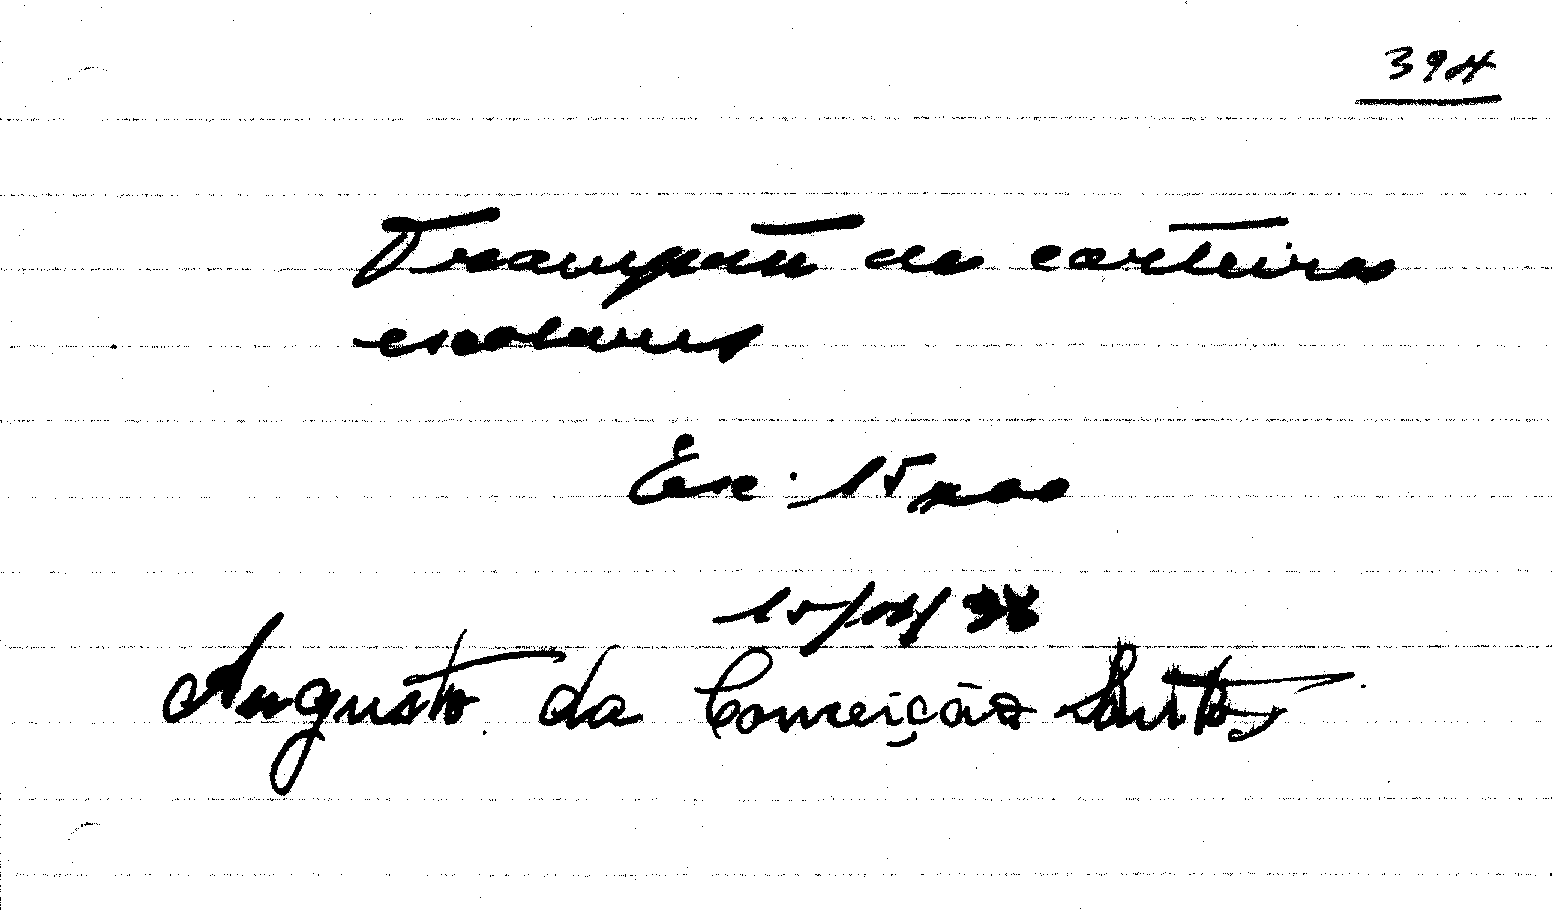 394
Transporte de carteiras
escolares
Augusto da Conceição Santos